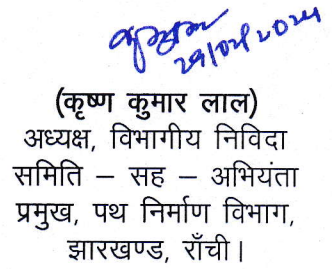 29/08/2024
(कृष्ण कुमार लाल)
अध्यक्ष, विभागीय निविदा
समिति – सह – अभियंता
प्रमुख, पथ निर्माण विभाग,
झारखण्ड, राँची।